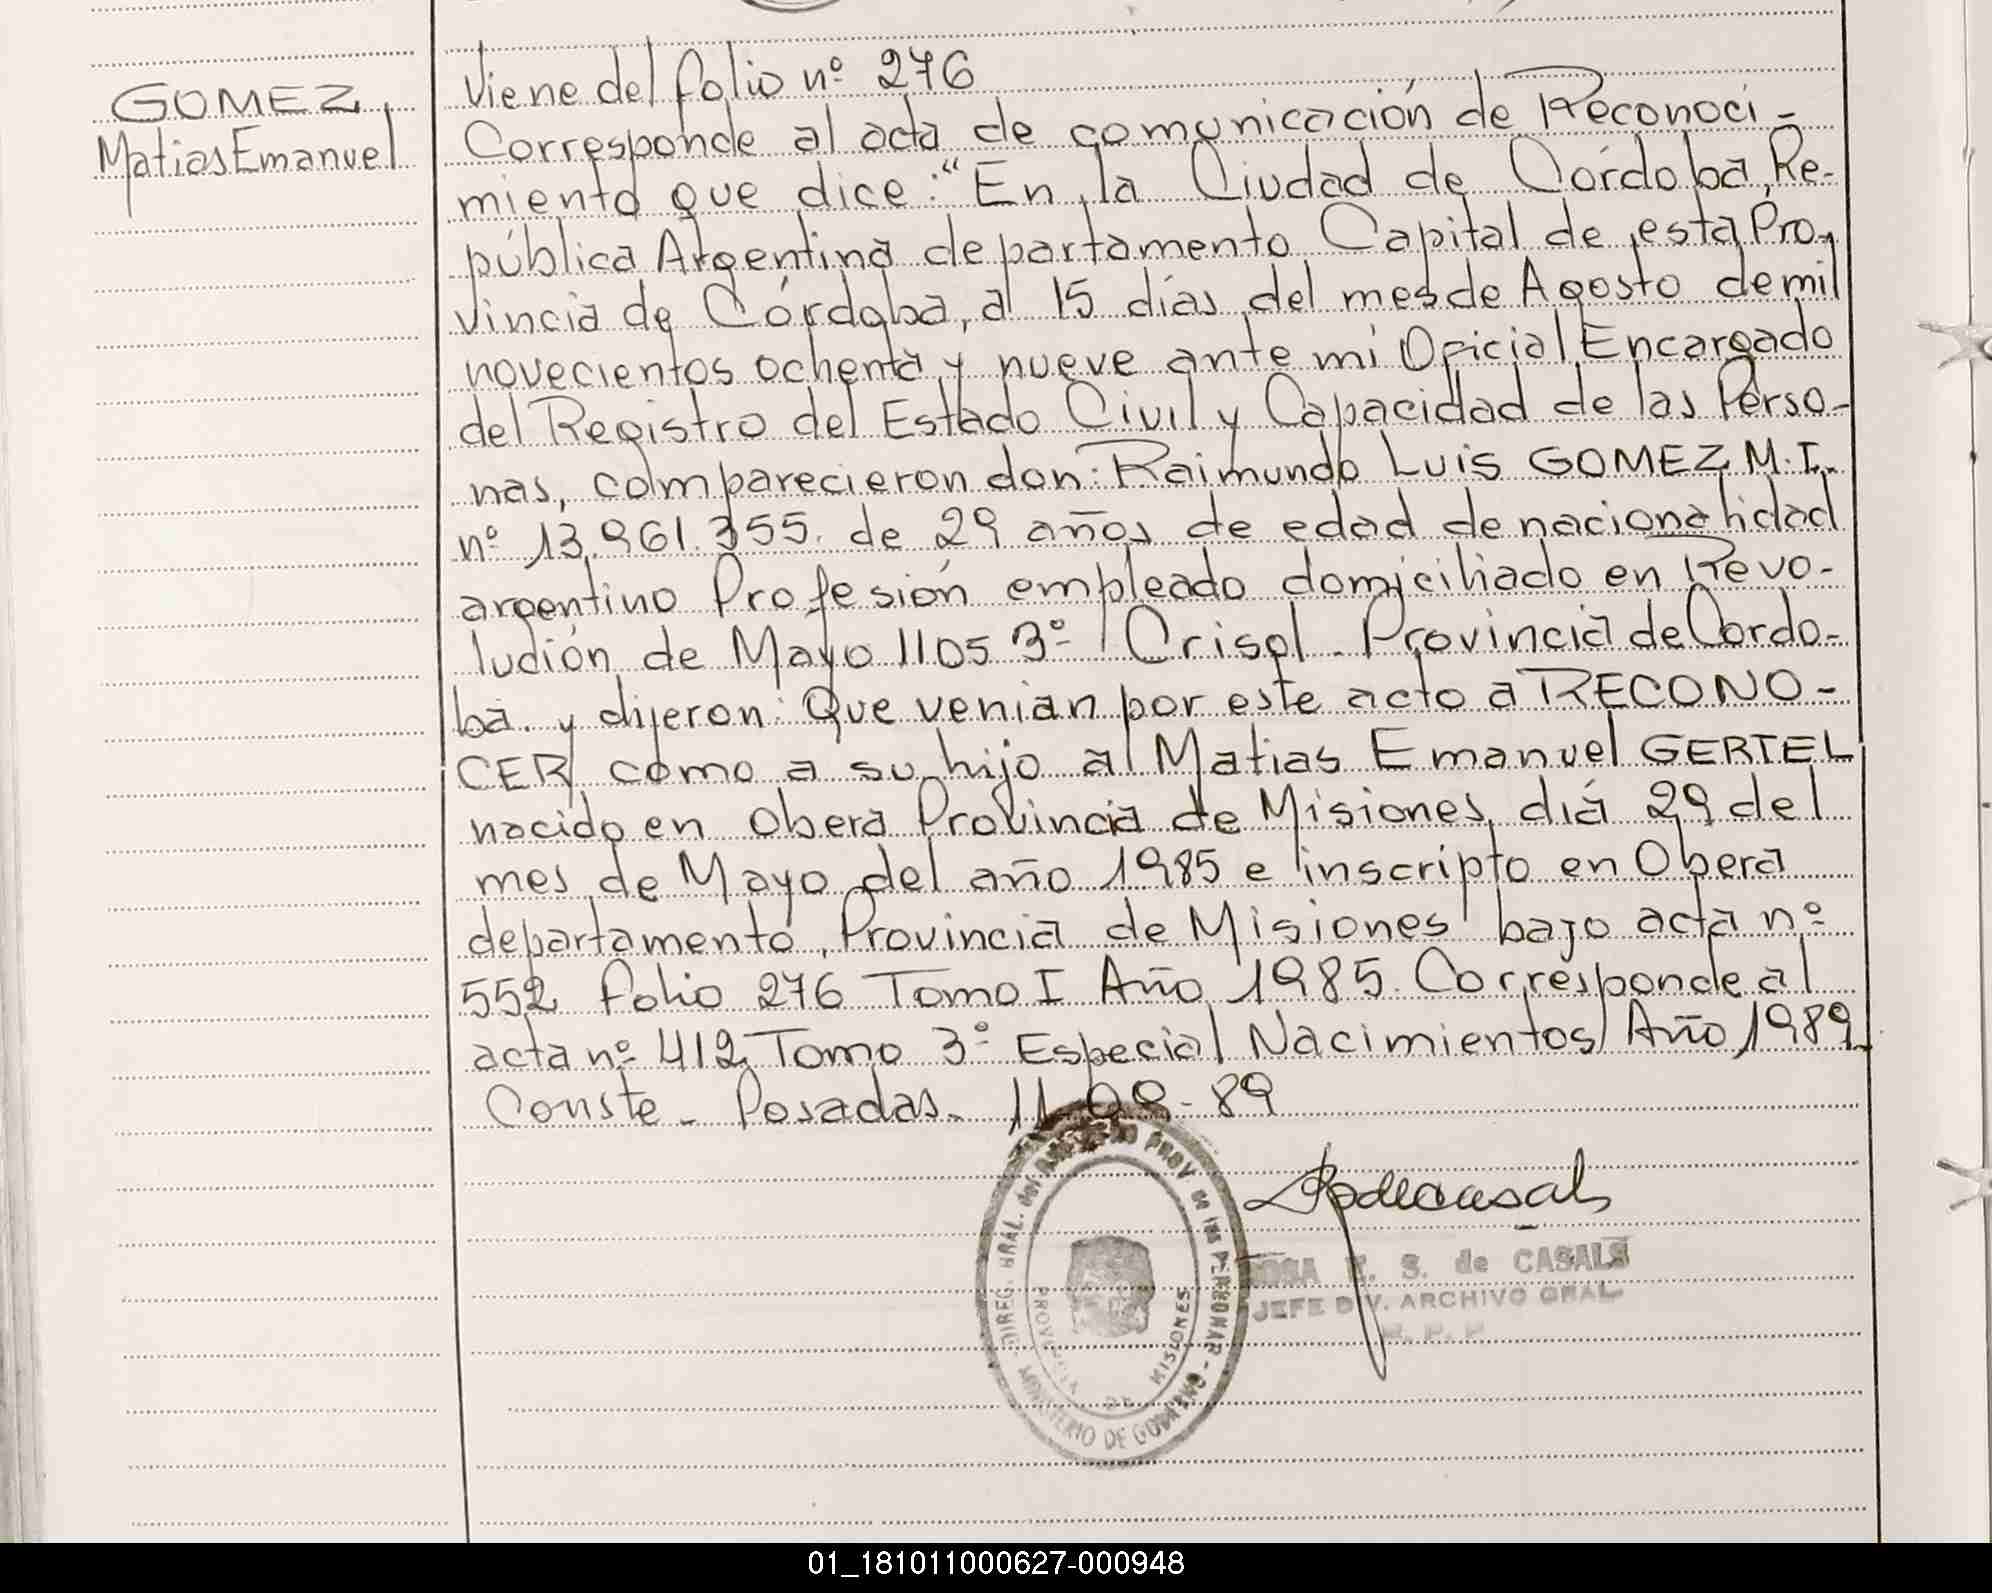 GOMEZ,
Matias Emanuel
Viene del folio nº 276
Corresponde al acta de comunicación de Reconoci-
miento que dice: "En la Ciudad de Córdoba, Re-
pública Argentina departamento Capital de esta Pro-
vincia de Córdoba, a 15 días del mes de Agosto de mil
novecientos ochenta y nueve ante mi Oficial Encargado
del Registro del Estado Civil y Capacidad de las Perso-
nas, comparecieron don: Raimundo Luis GOMEZ M.I.
nº 13.961.355. de 29 años de edad de nacionalidad
argentino Profesión empleado domiciliado en Revo-
ludión de Mayo 1105 3º Crisol - Provincia de Cordo-
ba. y dijeron: Que venian por este acto a RECONO-
CER como a su hijo al Matias Emanuel GERTEL
nacido en Obera Provincia de Misiones, diá 29 del
mes de Mayo del año 1985 e inscripto en Obera
departamento, Provincia de Misiones bajo acta nº
552 folio 276 Tomo I Año 1985. Corresponde al
acta nº 412 Tomo 3º Especial Nacimientos Año 1989.
Conste - Posadas - 11-09-89
DIREG. GRAL. del PROV de las PERSONAS - MINISTERIO DE GOBIERNO
PROVINCIA DE MISIONES
S. de CASALS
JEFE DIV. ARCHIVO GRAL.
R. P. P.
01_181011000627-000948